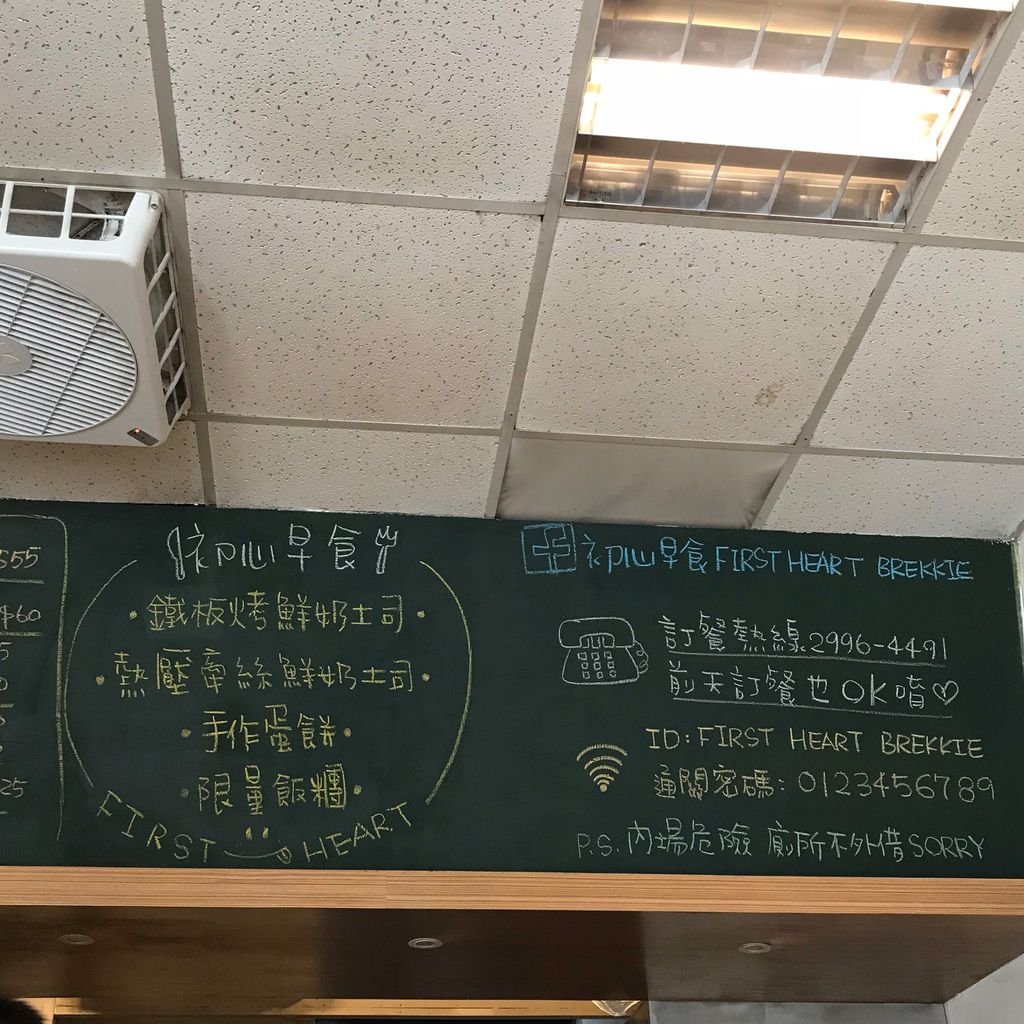 $55
$60
25
初心早食
鐵板烤鮮奶土司
熱壓牽絲鮮奶土司
手作蛋餅
限量飯糰
FIRST HEART
初心早食 FIRST HEART BREKKIE
訂餐熱線 2996-4491
前天訂餐也OK唷♡
ID: FIRST HEART BREKKIE
通關密碼: 0123456789
P.S. 內場危險 廁所不外借 SORRY